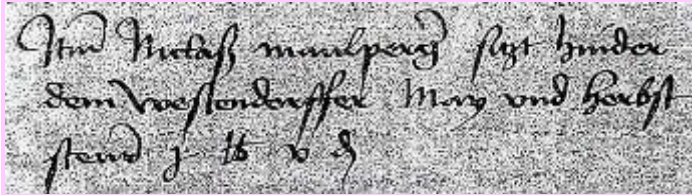 Itm Niclaß maulperg sitzt hinder
dem Westendorffer May vnd herbst
stewr j lb v d